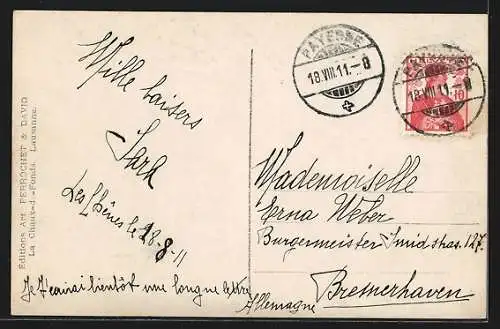 Mille baisers
Sara
Les Chênes le 18-8-11
Je t'écrirai bientôt une longue lettre
Editions Art. PERROCHET & DAVID
La Chaux-d.-Fonds. Lausanne.
PAYERNE
18.VIII.11.-8
PAYERNE
18.VIII.11.-8
10
Mademoiselle
Erna Weber
Burgermeister Smidstras. 127.
Bremerhaven
Allemagne